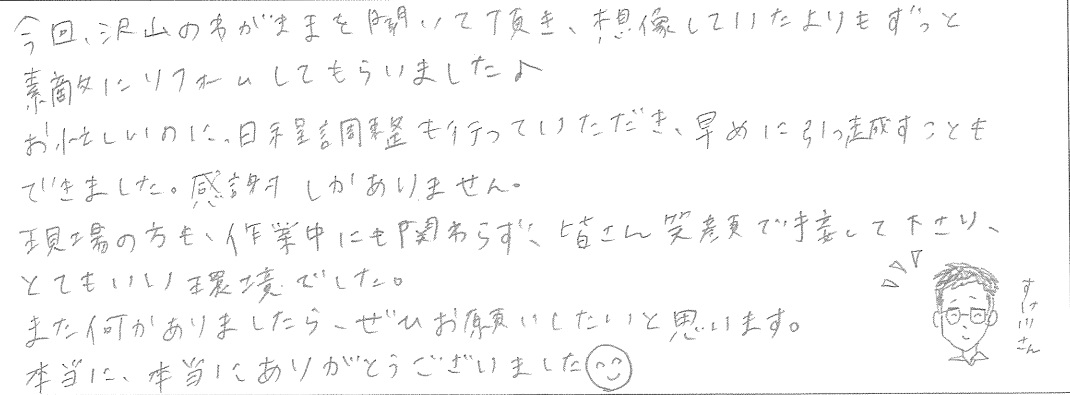 今回、沢山のわがままを聞いて頂き、想像していたよりもずっと
素敵にリフォームしてもらいました♪
お忙しいのに、日程調整も行っていただき、早めに引っ越すことも
できました。感謝しかありません。
現場の方も、作業中にも関わらず、皆さん笑顔で接して下さり、
とてもいい環境でした。
また何かありましたら、ぜひお願いしたいと思います。
本当に、本当にありがとうございました
すけ川さん